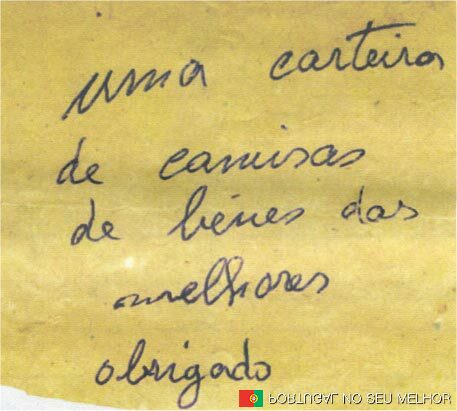 uma carteira
de camisas
de bénes das
melhores
obrigado
PORTUGAL NO SEU MELHOR